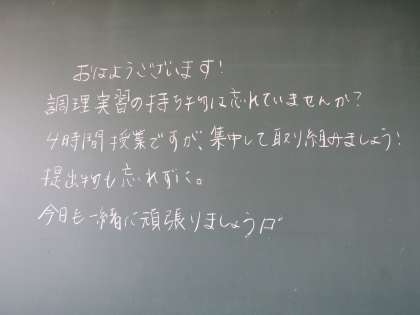 おはようございます!
調理実習の持ち物は忘れていませんか?
4時間授業ですが、集中して取り組みましょう!
提出物も忘れずに。
今日も一緒に頑張りましょう